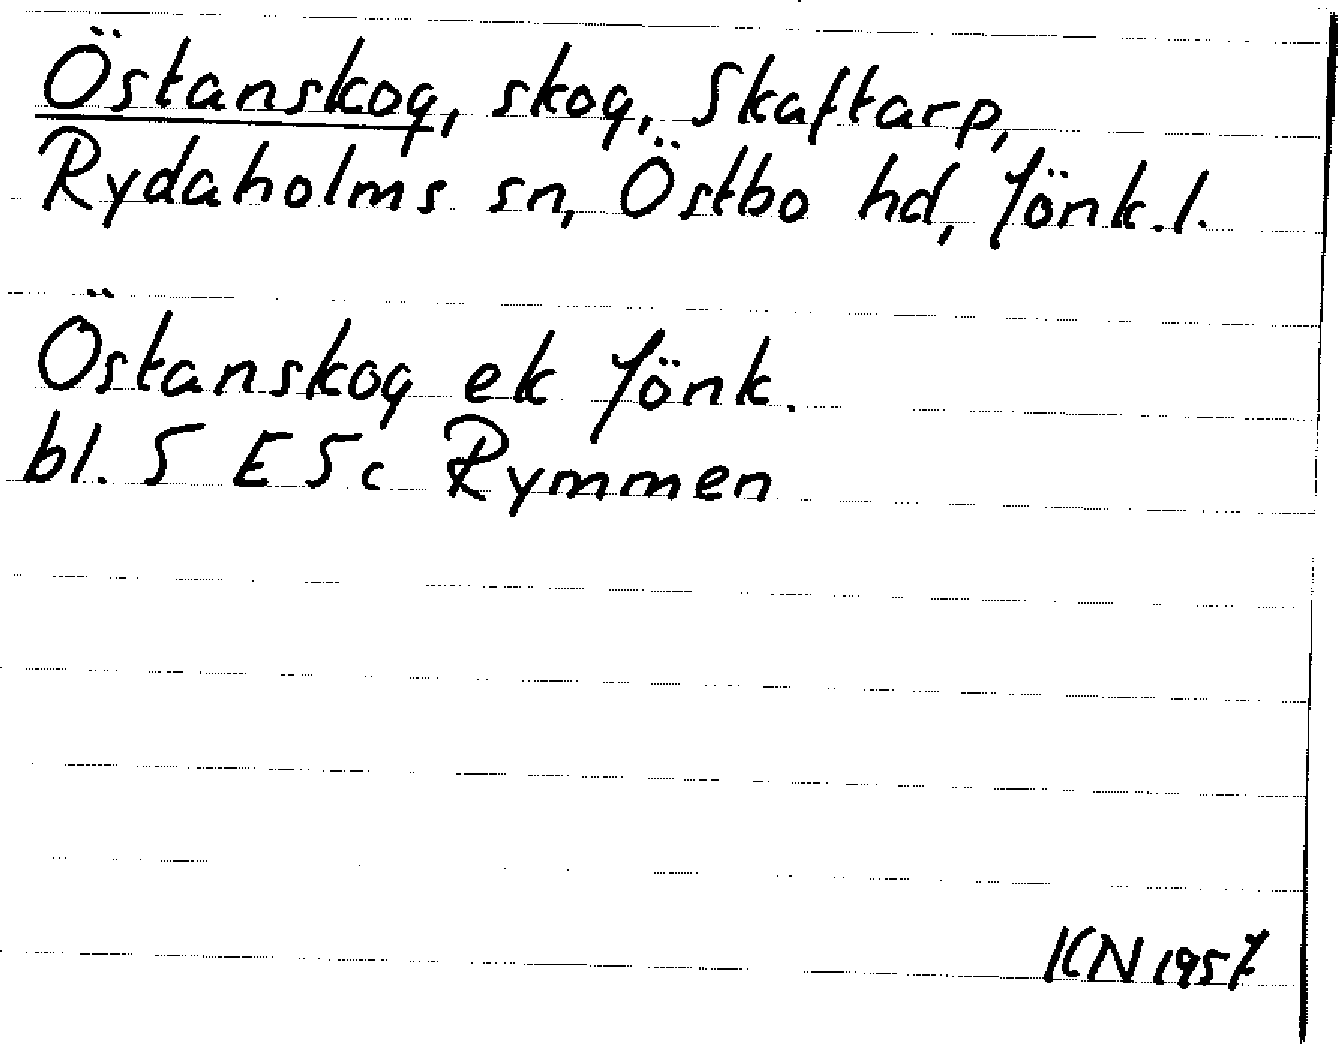 Östanskog, skog, Skaftarp,
Rydaholms sn, Östbo hd, Jönk.l.
Östanskog ek Jönk.
bl. 5 E 5 c Rymmen
KN 1957